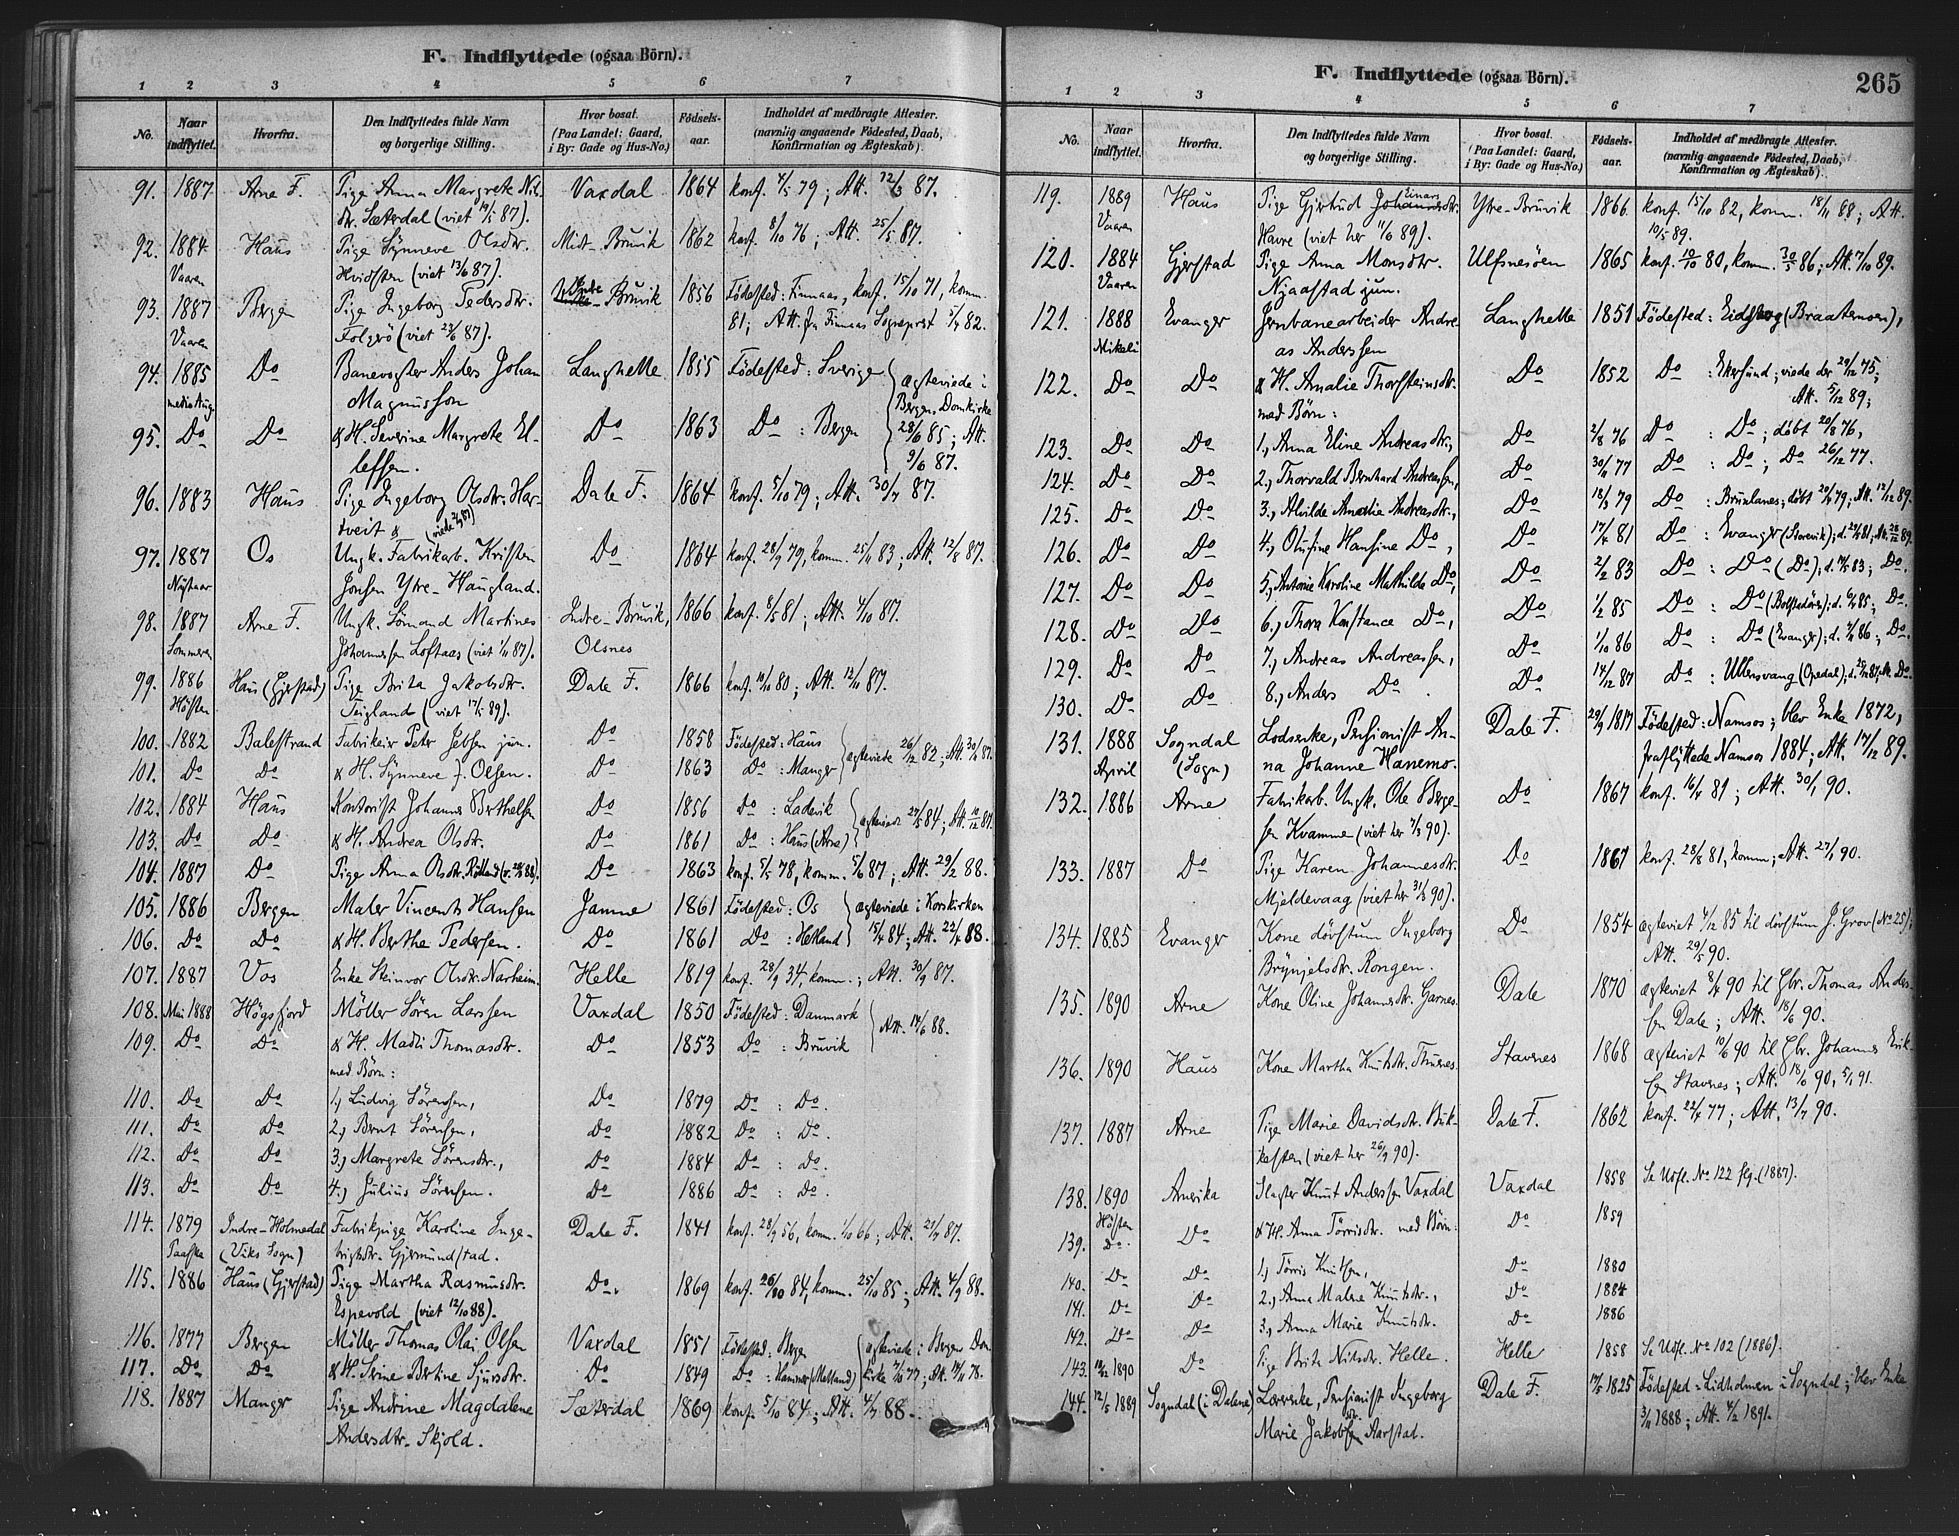 F. Indflyttede (ogsaa Börn).
1 2 3 4 5 6 7
No. Naar indflyttet. Hvorfra. Den Indflyttedes fulde Navn og borgerlige Stilling. Hvor bosat. (Paa Landet: Gaard, i By: Gade og Hus-No.) Födsels-aar. Indholdet af medbragte Attester. (navnlig angaaende Födested, Daab, Konfirmation og Ægteskab).
91. 1887 Arne F. Pige Anna Margrete Nils- Vaxdal 1864 konf. 4/5 79; Att. 12/3 87.
dtr. Sæterdal (viet 19/5 87).
92. 1884 Haus Pige Synneve Olsdtr. Midt-Bruvik 1862 konf. 8/10 76; Att. 25/5 87.
Vaaren Hvidsten (viet 13/6 87).
93. 1887 Berge Pige Ingeborg Pedersdtr. Indre-Bruvik 1856 Födested: Finnaas, konf. 15/10 71, komm.
Vaaren Folgerö (viet 22/6 87). 81; Att. fra Finnaas Sognepræst 5/7 82.
94. 1885 Do Banevogter Anders Johan Langhelle 1855 Födested: Sverige ægteviede i
medio Aug. Magnusson Bergens Domkirke
95. Do Do & H. Severine Margrete El- Do 1863 Do : Bergen 28/6 85; Att.
lefsen. 9/6 87.
96. 1883 Haus Pige Ingeborg Olsdtr. Har- Dale F. 1864 konf. 5/10 79; Att. 30/7 87.
tveit &
97. 1887 Os Ungk. Fabrikarb. Kristen Do 1864 konf. 28/9 79, komm. 25/11 83; Att. 12/8 87.
Nytaar Jonsen Ytre-Haugland.
98. 1887 Arne F. Ungk. Sömand Martines Indre-Bruvik, 1866 konf. 8/5 81; Att. 4/10 87.
Sommeren Johannessen Loftaas (viet 1/11 87). Olsnes
99. 1886 Haus (Gjerstad) Pige Brita Jakobsdtr. Dale F. 1866 konf. 10/10 80; Att. 12/11 87.
Hösten Teigland (viet 17/5 89).
100. 1882 Balestrand Fabrikeier Peter Jebsen jun. Do 1858 Födested: Haus ægteviede 26/12 82; Att. 30/11 87.
101. Do Do & H. Synneve J. Olsen. Do 1863 Do : Manger
102. 1884 Haus Kontorist Johannes Berthelsen Do 1856 Do : Ladevik ægteviede 27/5 84, Att. 10/12 87.
103. Do Do & H. Andrea Olsdtr. Do 1861 Do : Haus (Arne)
104. 1887 Do Pige Anna Olsdtr. Do 1863 konf. 5/5 78, komm. 5/6 87; Att. 29/2 88.
105. 1886 Bergen Maler Vincents Hansen Jamne 1861 Födested: Os ægteviede i Korskirken
106. Do Do & H. Berthe Pedersen. Do 1861 Do : Hetland 15/4 84; Att. 22/4 88.
107. 1887 Vos Enke Steinvor Olsdtr. Narheim. Helle 1819 konf. 28/9 34, komm.; Att. 30/9 87.
108. Mai 1888 Högsfjord Möller Sören Larssen Vaxdal 1850 Födested: Danmark Att. 14/6 88.
109. Do Do & H. Madli Thomasdtr. Do 1853 Do : Bruvik
med Börn:
110. Do Do 1, Ludvig Sörensen, Do 1879 Do : Do.
111. Do Do 2, Bernt Sörensen, Do 1882 Do : Do.
112. Do Do 3, Margrete Sörensdtr., Do 1884 Do : Do.
113. Do Do 4, Julius Sörensen. Do 1886 Do : Do.
114. 1879 Indre-Holmedal Fabrikpige Karoline Inge- Dale F. 1841 konf. 28/9 56, komm. 1/10 66; Att. 21/7 87.
Paaske (Viks Sogn) brigtsdtr. Gjermundstad.
115. 1886 Haus (Gjerstad) Pige Martha Rasmusdtr. Do. 1869 konf. 26/10 84, komm. 25/10 85; Att. 4/9 88.
Espevold (viet 12/10 88).
116. 1877 Bergen Möller Thomas Olai Olsen Vaxdal 1851 Födested: Bergen ægteviede i Bergens Dom-
117. Do Do & H. Serine Bertine Sjursdtr. Do 1849 Do : Hammer kirke 77; Att. 78.
118. 1887 Manger Pige Andrine Magdalene Sæterdal 1869 konf. 5/10 84; Att. 4/9 88.
Andersdtr. Skjold.
F. Indflyttede (ogsaa Börn). 265
1 2 3 4 5 6 7
No. Naar indflyttet. Hvorfra. Den Indflyttedes fulde Navn og borgerlige Stilling. Hvor bosat. (Paa Landet: Gaard, i By: Gade og Hus-No.) Födsels-aar. Indholdet af medbragte Attester. (navnlig angaaende Födested, Daab, Konfirmation og Ægteskab).
119. 1889 Haus Pige Gjertrud Einars Johannesdtr. Ytre-Bruvik 1866 konf. 15/10 82, komm. 18/11 88; Att.
Vaaren Havre (viet her 11/6 89). 10/5 89.
120. 1884 Gjerstad Pige Anna Monsdtr. Ulfsnesöen 1865 konf. 10/10 80, komm. 30/5 86; Att. 7/10 89.
Vaaren Njaastad jun.
121. 1888 Evanger Jernbanearbeider Andre- Langhelle 1851 Födested: Eidsberg (Braatemoen),
Mikeli as Anderssen
122. Do Do & H. Amalie Thorsteinsdtr. Do 1852 Do : Ekersund; viede der 29/12 75;
med Börn: Att. 5/12 89;
123. Do Do 1, Anna Eline Andreasdtr., Do 2/8 76 Do : Do; döbt 20/8 76,
124. Do Do 2, Thorvald Bernhard Andreassen, Do 30/11 77 Do : Do; Do 26/12 77.
125. Do Do 3, Alvilde Amalie Andreasdtr., Do 18/3 79 Do : Brunlanes; döbt 20/4 79; Att. 12/12 89.
126. Do Do 4, Olufine Hansine Do, Do 17/4 81 Do : Evanger (Storevik); d. 81; Att. 89.
127. Do Do 5, Antonie Karoline Mathilde Do, Do 2/2 83 Do : Do (Do); d. 83; Do.
128. Do Do 6, Thora Konstance Do, Do 1/2 85 Do : Do (Bolstadören); d. 85; Do.
129. Do Do 7, Andreas Andreassen, Do 1/10 86 Do : Do (Evanger); d. 86; Do.
130. Do Do 8, Anders Do. Do 14/12 87 Do : Ullensvang (Opedal); d. 87; Att. Do.
131. 1888 Sogndal Lodsenke, Pensionist An- Dale F. 29/9 1817 Födested: Namsos; blev Enke 1872,
April (Sogn) na Johanne Hanemo. fraflyttede Namsos 1884; Att. 17/12 89.
132. 1886 Arne Fabrikarb. Ungk. Ole Berge- Do 1867 konf. 16/4 81; Att. 30/1 90.
sen Kvamme (viet her 7/3 90).
133. 1887 Do Pige Karen Johannesdtr. Do 1867 konf. 28/8 81, komm; Att. 27/1 90.
Mjeldevaag (viet her 31/3 90).
134. 1885 Evanger Kone dövstum Ingeborg Do 1854 ægteviet 4/12 85 til dövstum J. Grov (No 25);
Brynjelsdtr. Rongen. Att. 29/5 90.
135. 1890 Arne Kone Oline Johannesdtr. Garnes Dale 1870 ægteviet 8/4 90 til Gbr. Thomas Anders-
sen Dale; Att. 18/6 90.
136. 1890 Haus Kone Martha Knutsdtr. Thunes Stavnes 1868 ægteviet 10/6 90 til Gbr. Johannes Erik-
sen Stavnes; Att. 18/6 90, 5/1 91.
137. 1887 Arne Pige Marie Davidsdtr. Buk- Dale F. 1862 konf. 22/4 77; Att. 13/7 90.
kesten (viet her 26/9 90).
138. 1890 Amerika Slagter Knut Anderssen Vaxdal Vaxdal 1858 Se Udfl. No 122 flg. (1887).
Hösten
139. Do Do & H. Anna Törrisdtr. med Börn: Do 1859
140. Do Do 1, Törris Knutsen, Do 1880
141. Do Do 2, Anna Malene Knutsdtr., Do 1884
142. Do Do 3, Anna Marie Knutsdtr. Do 1886
143. 1890 Do Pige Brita Nilsdtr. Helle. Helle 1858 Se Udfl. No 102 (1886).
144. 12/5 1889 Sogndal (i Dalene) Pensionist Ingeborg Dale F. 17/5 1825 Födested: Lidholmen i Sogndal; blev Enke
Marie Jakobsdtr. Aarstad. 3/11 1888; Att. 4/2 1891.